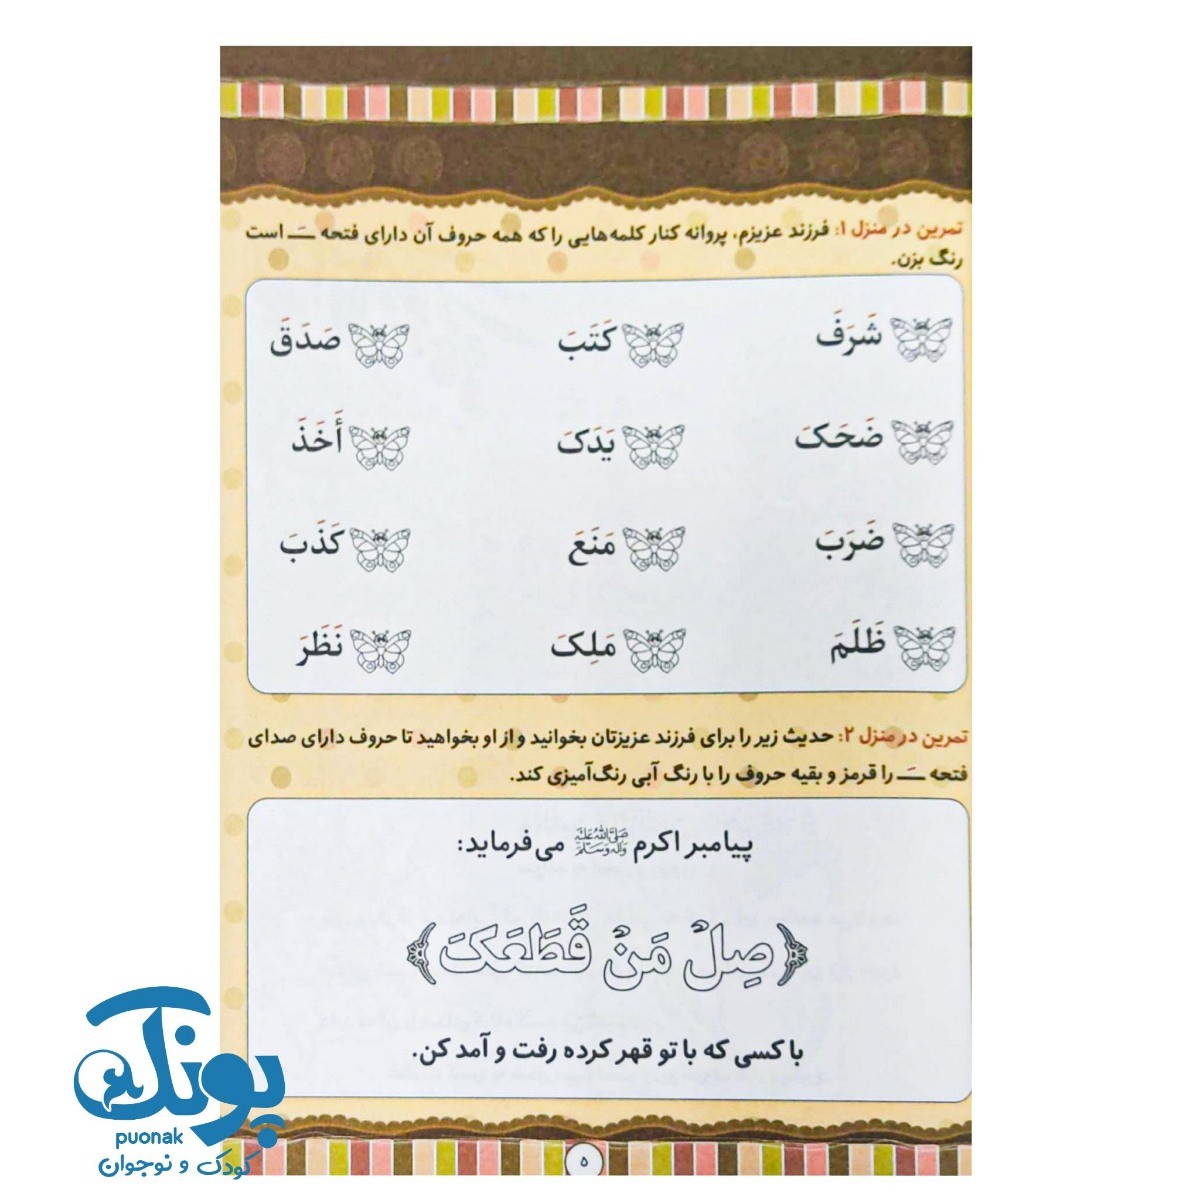 تمرین در منزل ۱: فرزند عزیزم، پروانه کنار کلمه‌هایی را که همه حروف آن دارای فتحه ـَـ است
رنگ بزن.
شَرَفَ کَتَبَ صَدَقَ
ضَحَکَ یَدَکَ أَخَذَ
ضَرَبَ مَنَعَ کَذَبَ
ظَلَمَ مَلِکَ نَظَرَ
تمرین در منزل ۲: حدیث زیر را برای فرزند عزیزتان بخوانید و از او بخواهید تا حروف دارای صدای
فتحه ـَـ را قرمز و بقیه حروف را با رنگ آبی رنگ‌آمیزی کند.
پیامبر اکرم صَلَّی اللهُ عَلَیْهِ وَآلِهِ وَسَلَّمَ می‌فرماید:
﴿صِلْ مَنْ قَطَعَکَ﴾
با کسی که با تو قهر کرده رفت و آمد کن.
۵
پونک
puonak
کودک و نوجوان